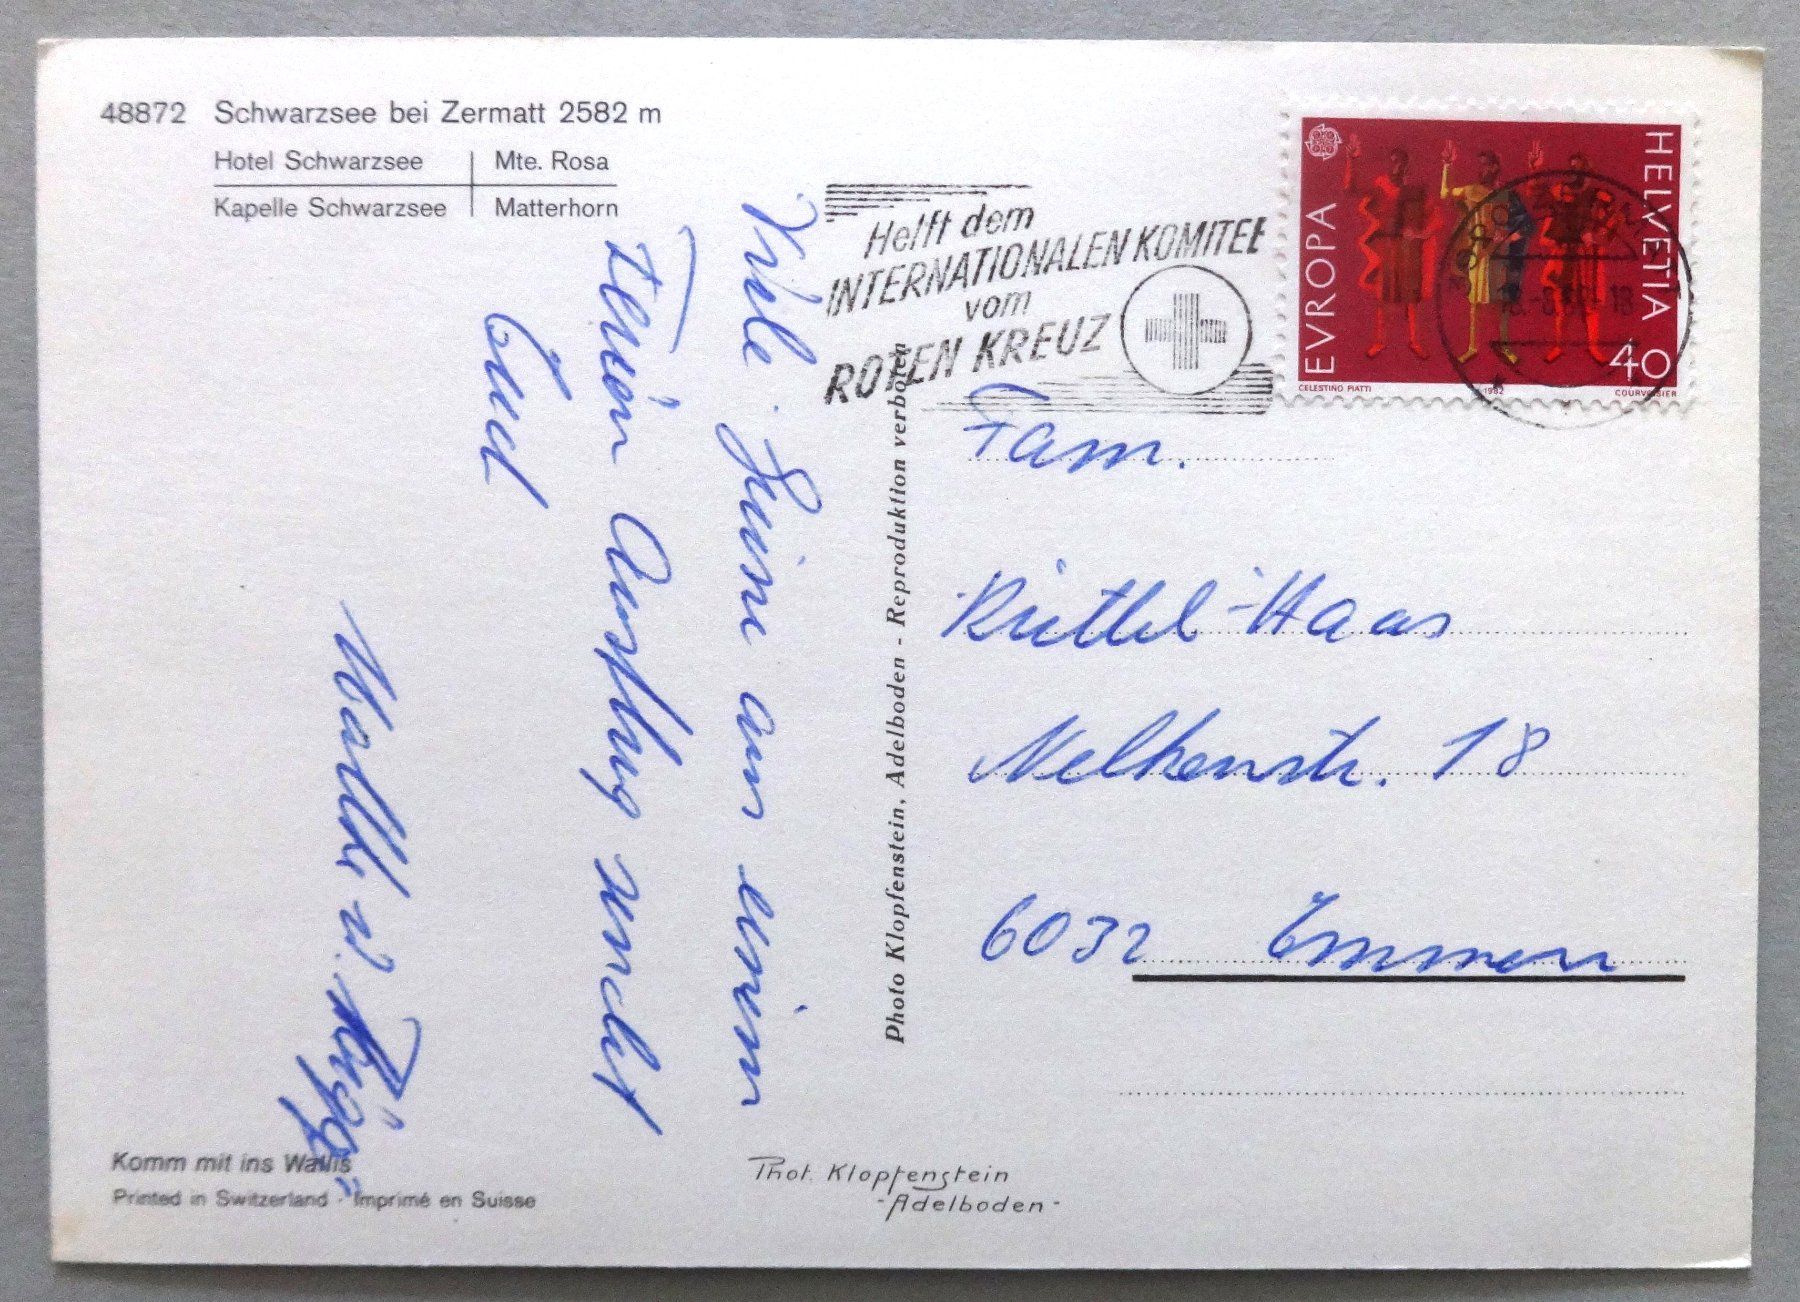 48872 Schwarzsee bei Zermatt 2582 m
Hotel Schwarzsee | Mte. Rosa
Kapelle Schwarzsee | Matterhorn
Helft dem
INTERNATIONALEN KOMITEE
vom
ROTEN KREUZ
EVROPA
HELVETIA
40
CELESTINO PIATTI
1982
COURVOISIER
Viele Grüsse aus einem
Ferien Ausflug sendet
Euch
Walti u.
Fam.
Rüttel-Haas
Nelkenstr. 18
6032 Emmen
Photo Klopfenstein, Adelboden - Reproduktion verboten
Komm mit ins Wallis
Printed in Switzerland - Imprimé en Suisse
Phot. Klopfenstein
-Adelboden-